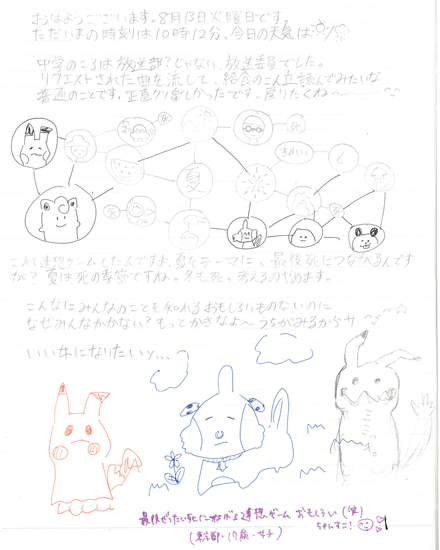 おはようございます。8月13日火曜日です。
ただいまの時刻は10時12分、今日の天気は
中学のころは放送部?じゃない、放送委員でした。
リクエストされた曲を流して、給食の献立読んでみたいな
普通のことです。正直クソ楽しかったです。戻りたくね〜
死
死
きれい
夏
死
死
これ連想ゲームしたんですよ。夏をテーマに。最後死につながるんです
が?夏は死の季節ですね。冬も死。考えるのやめます。
こんなにみんなのことを知れるおもしろいものないのに
なぜみんなかかない?もってかきなよ〜うちがみるからサ
いい女になりたいッ...
最後ぜったい死につながる連想ゲームおもしろい(笑)
ちゃんすこ!
(東京都・17歳・女子)